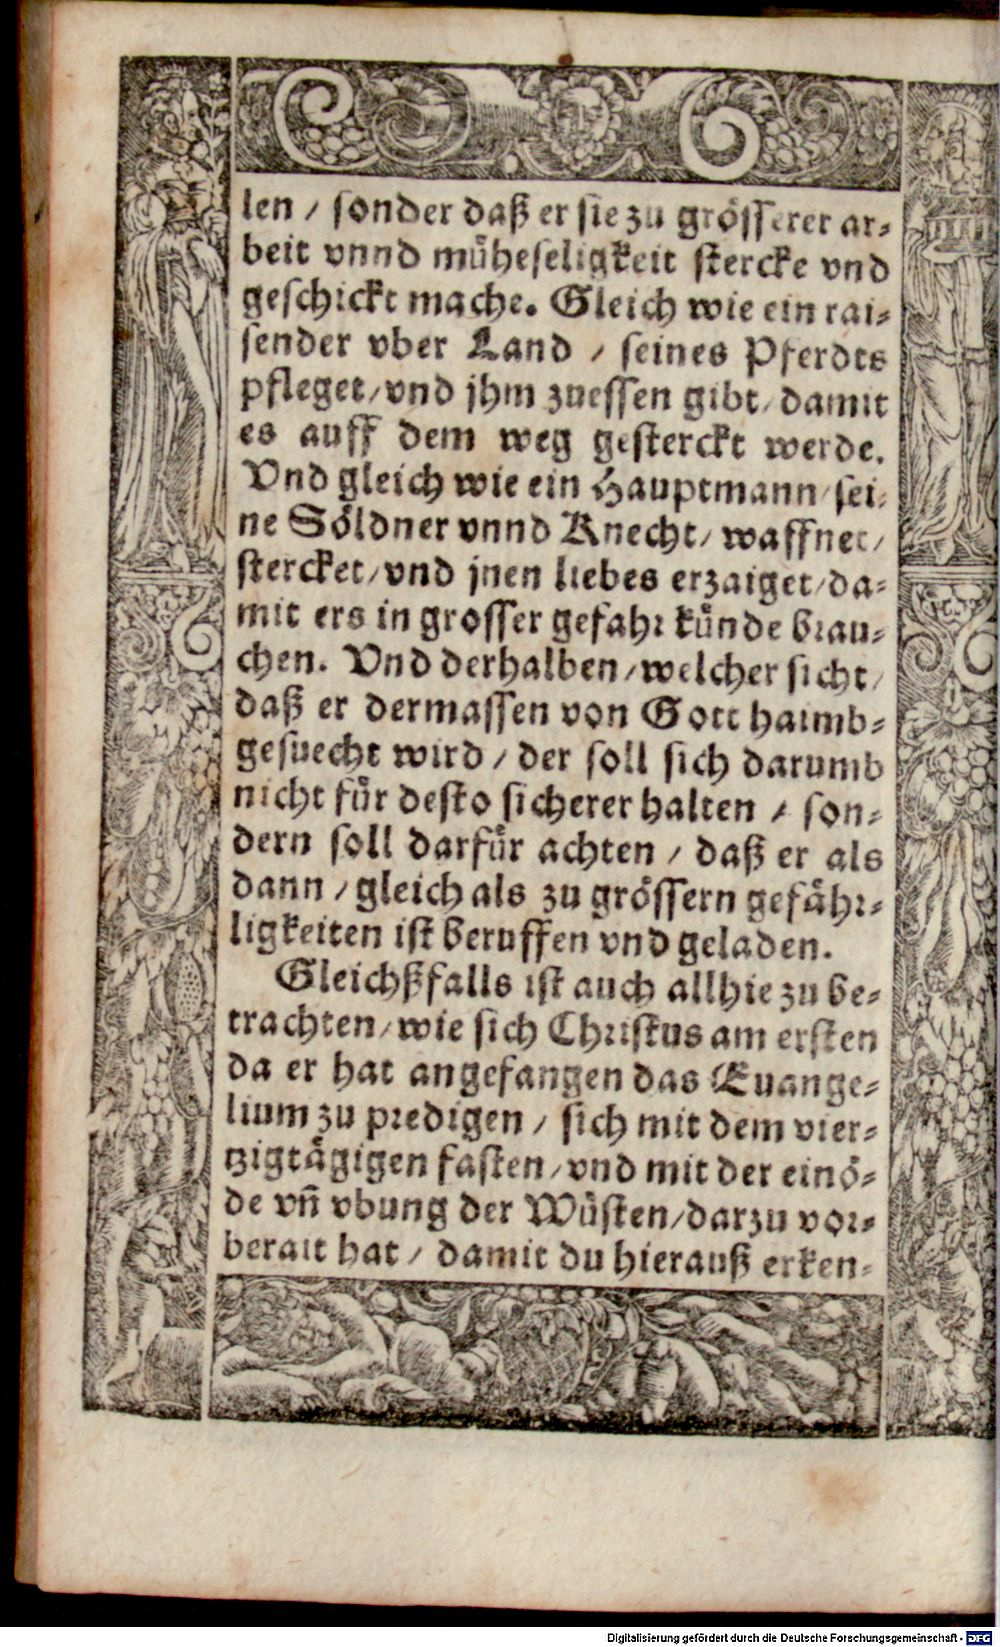 len / sonder daß er sie zu grösserer ar-
beit vnnd müheseligkeit stercke vnd
geschickt mache. Gleich wie ein rai-
sender vber Land / seines Pferdts
pfleget/vnd jhm zuessen gibt/damit
es auff dem weg gesterckt werde.
Vnd gleich wie ein Hauptmann/sei-
ne Söldner vnnd Knecht/ waffnet/
stercket/vnd jnen liebes erzaiget/da-
mit ers in grosser gefahr künde brau-
chen. Vnd derhalben/welcher sicht/
daß er dermassen von Gott haimb-
gesuecht wird / der soll sich darumb
nicht für desto sicherer halten / son-
dern soll darfür achten / daß er als
dann / gleich als zu grössern gefähr-
ligkeiten ist beruffen vnd geladen.
Gleichßfalls ist auch allhie zu be-
trachten/wie sich Christus am ersten
da er hat angefangen das Euange-
lium zu predigen / sich mit dem vier-
tzigtägigen fasten/vnd mit der einö-
de vñ vbung der Wüsten/darzu vor-
berait hat / damit du hierauß erken-
Digitalisierung gefördert durch die Deutsche Forschungsgemeinschaft - DFG